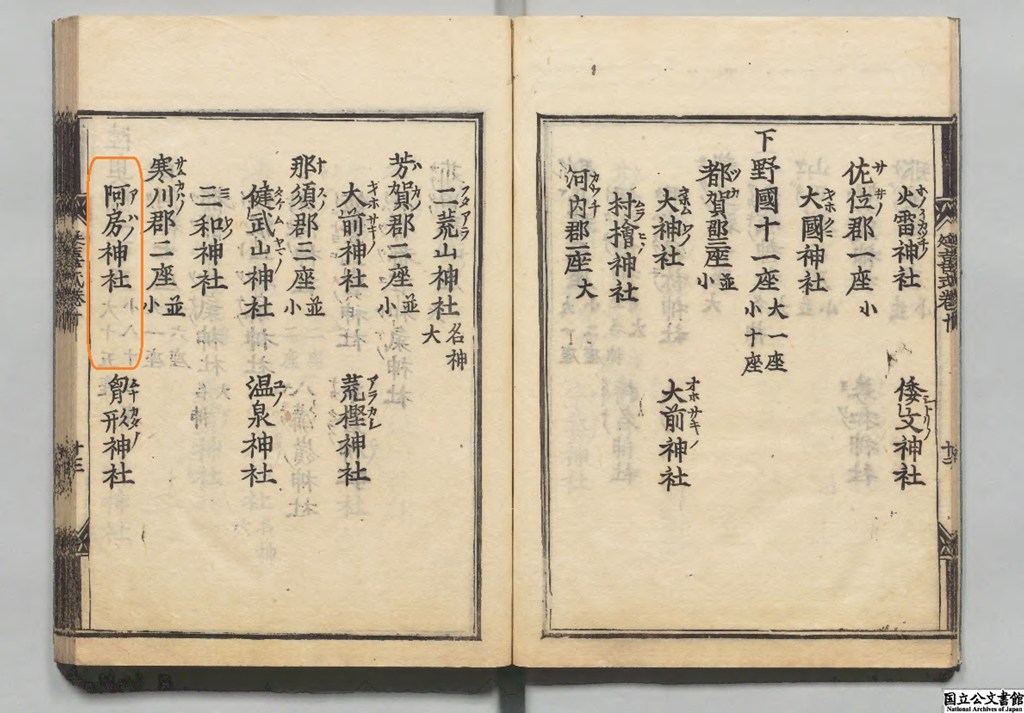 火雷神社 倭文神社
佐位郡一座小
大國神社
下野國十一座大一座小十座
都賀郡三座並小
大神社 大前神社
村檜神社
河内郡一座大
二荒山神社名神大
芳賀郡二座並小
大前神社 荒樫神社
那須郡三座並小
健武山神社 温泉神社
三和神社
寒川郡二座並小
阿房神社 胷形神社
国立公文書館
National Archives of Japan